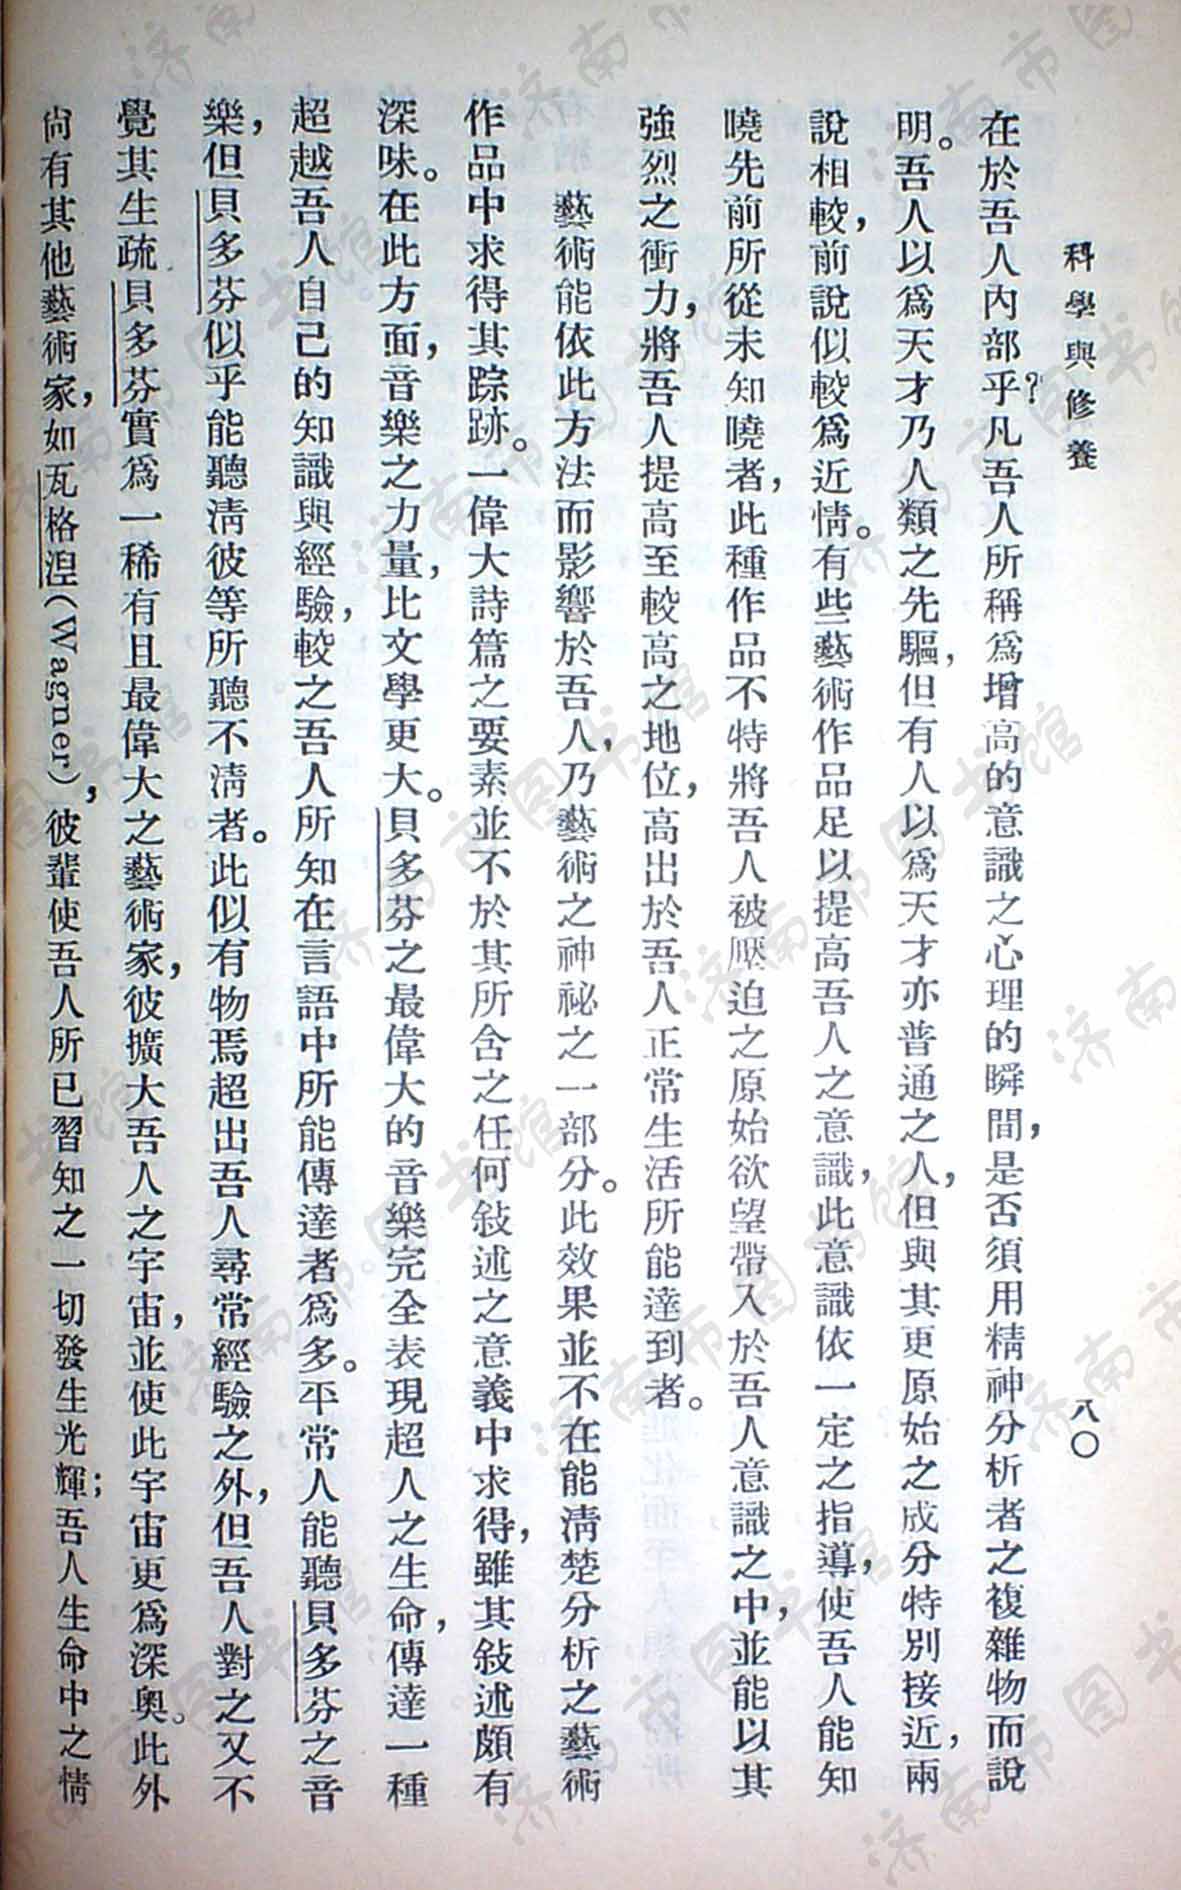 科學與修養
八〇
在於吾人內部乎?凡吾人所稱爲增高的意識之心理的瞬間,是否須用精神分析者之複雜物而說
明。吾人以爲天才乃人類之先驅,但有人以爲天才亦普通之人,但與其更原始之成分特別接近,兩
說相較,前說似較爲近情。有些藝術作品足以提高吾人之意識,此意識依一定之指導,使吾人能知
曉先前所從未知曉者,此種作品不特將吾人被壓迫之原始欲望帶入於吾人意識之中,並能以其
強烈之衝力,將吾人提高至較高之地位,高出於吾人正常生活所能達到者。
藝術能依此方法而影響於吾人,乃藝術之神祕之一部分。此效果並不在能清楚分析之藝術
作品中求得其踪跡。一偉大詩篇之要素並不於其所含之任何敍述之意義中求得,雖其敍述頗有
深味。在此方面,音樂之力量,比文學更大。貝多芬之最偉大的音樂完全表現超人之生命,傳達一種
超越吾人自己的知識與經驗,較之吾人所知在言語中所能傳達者爲多。平常人能聽貝多芬之音
樂,但貝多芬似乎能聽淸彼等所聽不淸者。此似有物焉超出吾人尋常經驗之外,但吾人對之又不
覺其生疏.貝多芬實爲一稀有且最偉大之藝術家,彼擴大吾人之宇宙,並使此宇宙更爲深奧。此外
尙有其他藝術家,如瓦格涅(Wagner),彼輩使吾人所已習知之一切發生光輝;吾人生命中之情
济南市图书馆